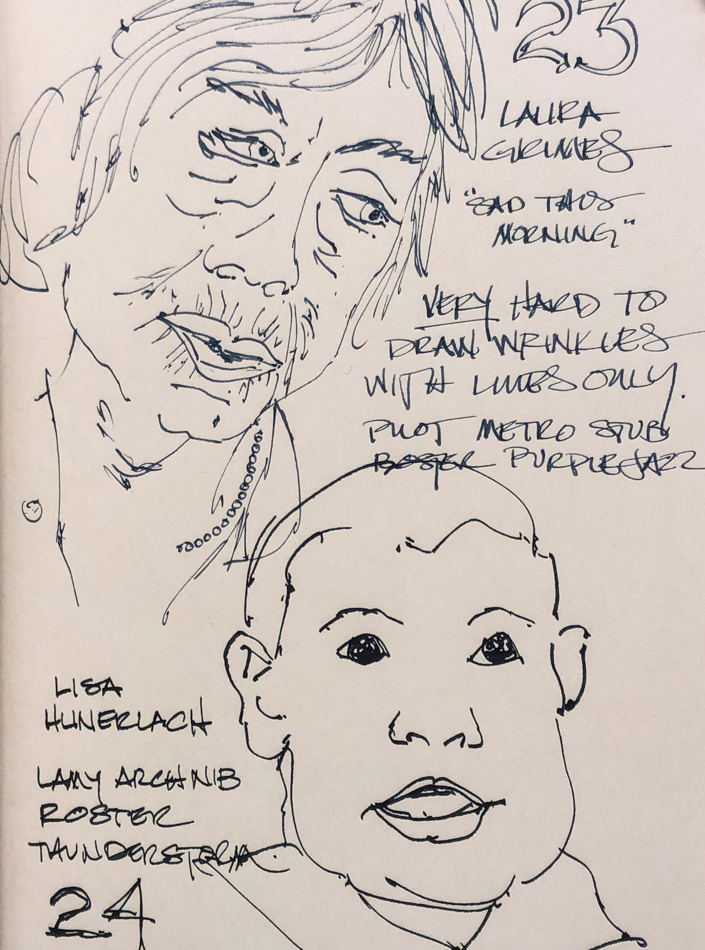 23
LAURA
GRIMES
"SAD THIS
MORNING"
VERY HARD TO
DRAW WRINKLES
WITH LINES ONLY.
PILOT METRO STUB
PURPLE JAZZ
LISA
HUNERLACH
LAMY ARCH NIB
ROSTER
24